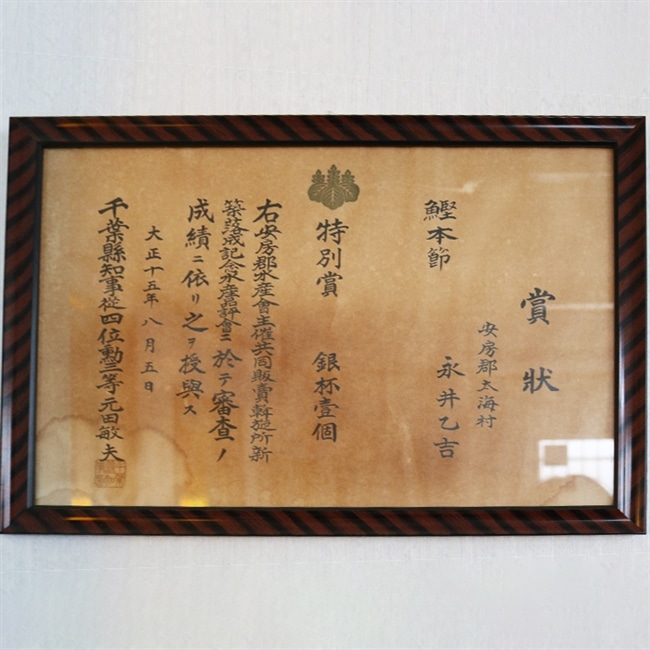 賞狀
安房郡太海村
永井乙吉
鰹本節
特別賞 銀杯壹個
右安房郡水産會主催共同販賣斡旋所新
築落成記念水産品評會ニ於テ審査ノ
成績ニ依リ之ヲ授與ス
大正十五年八月五日
千葉縣知事從四位勳三等元田敏夫